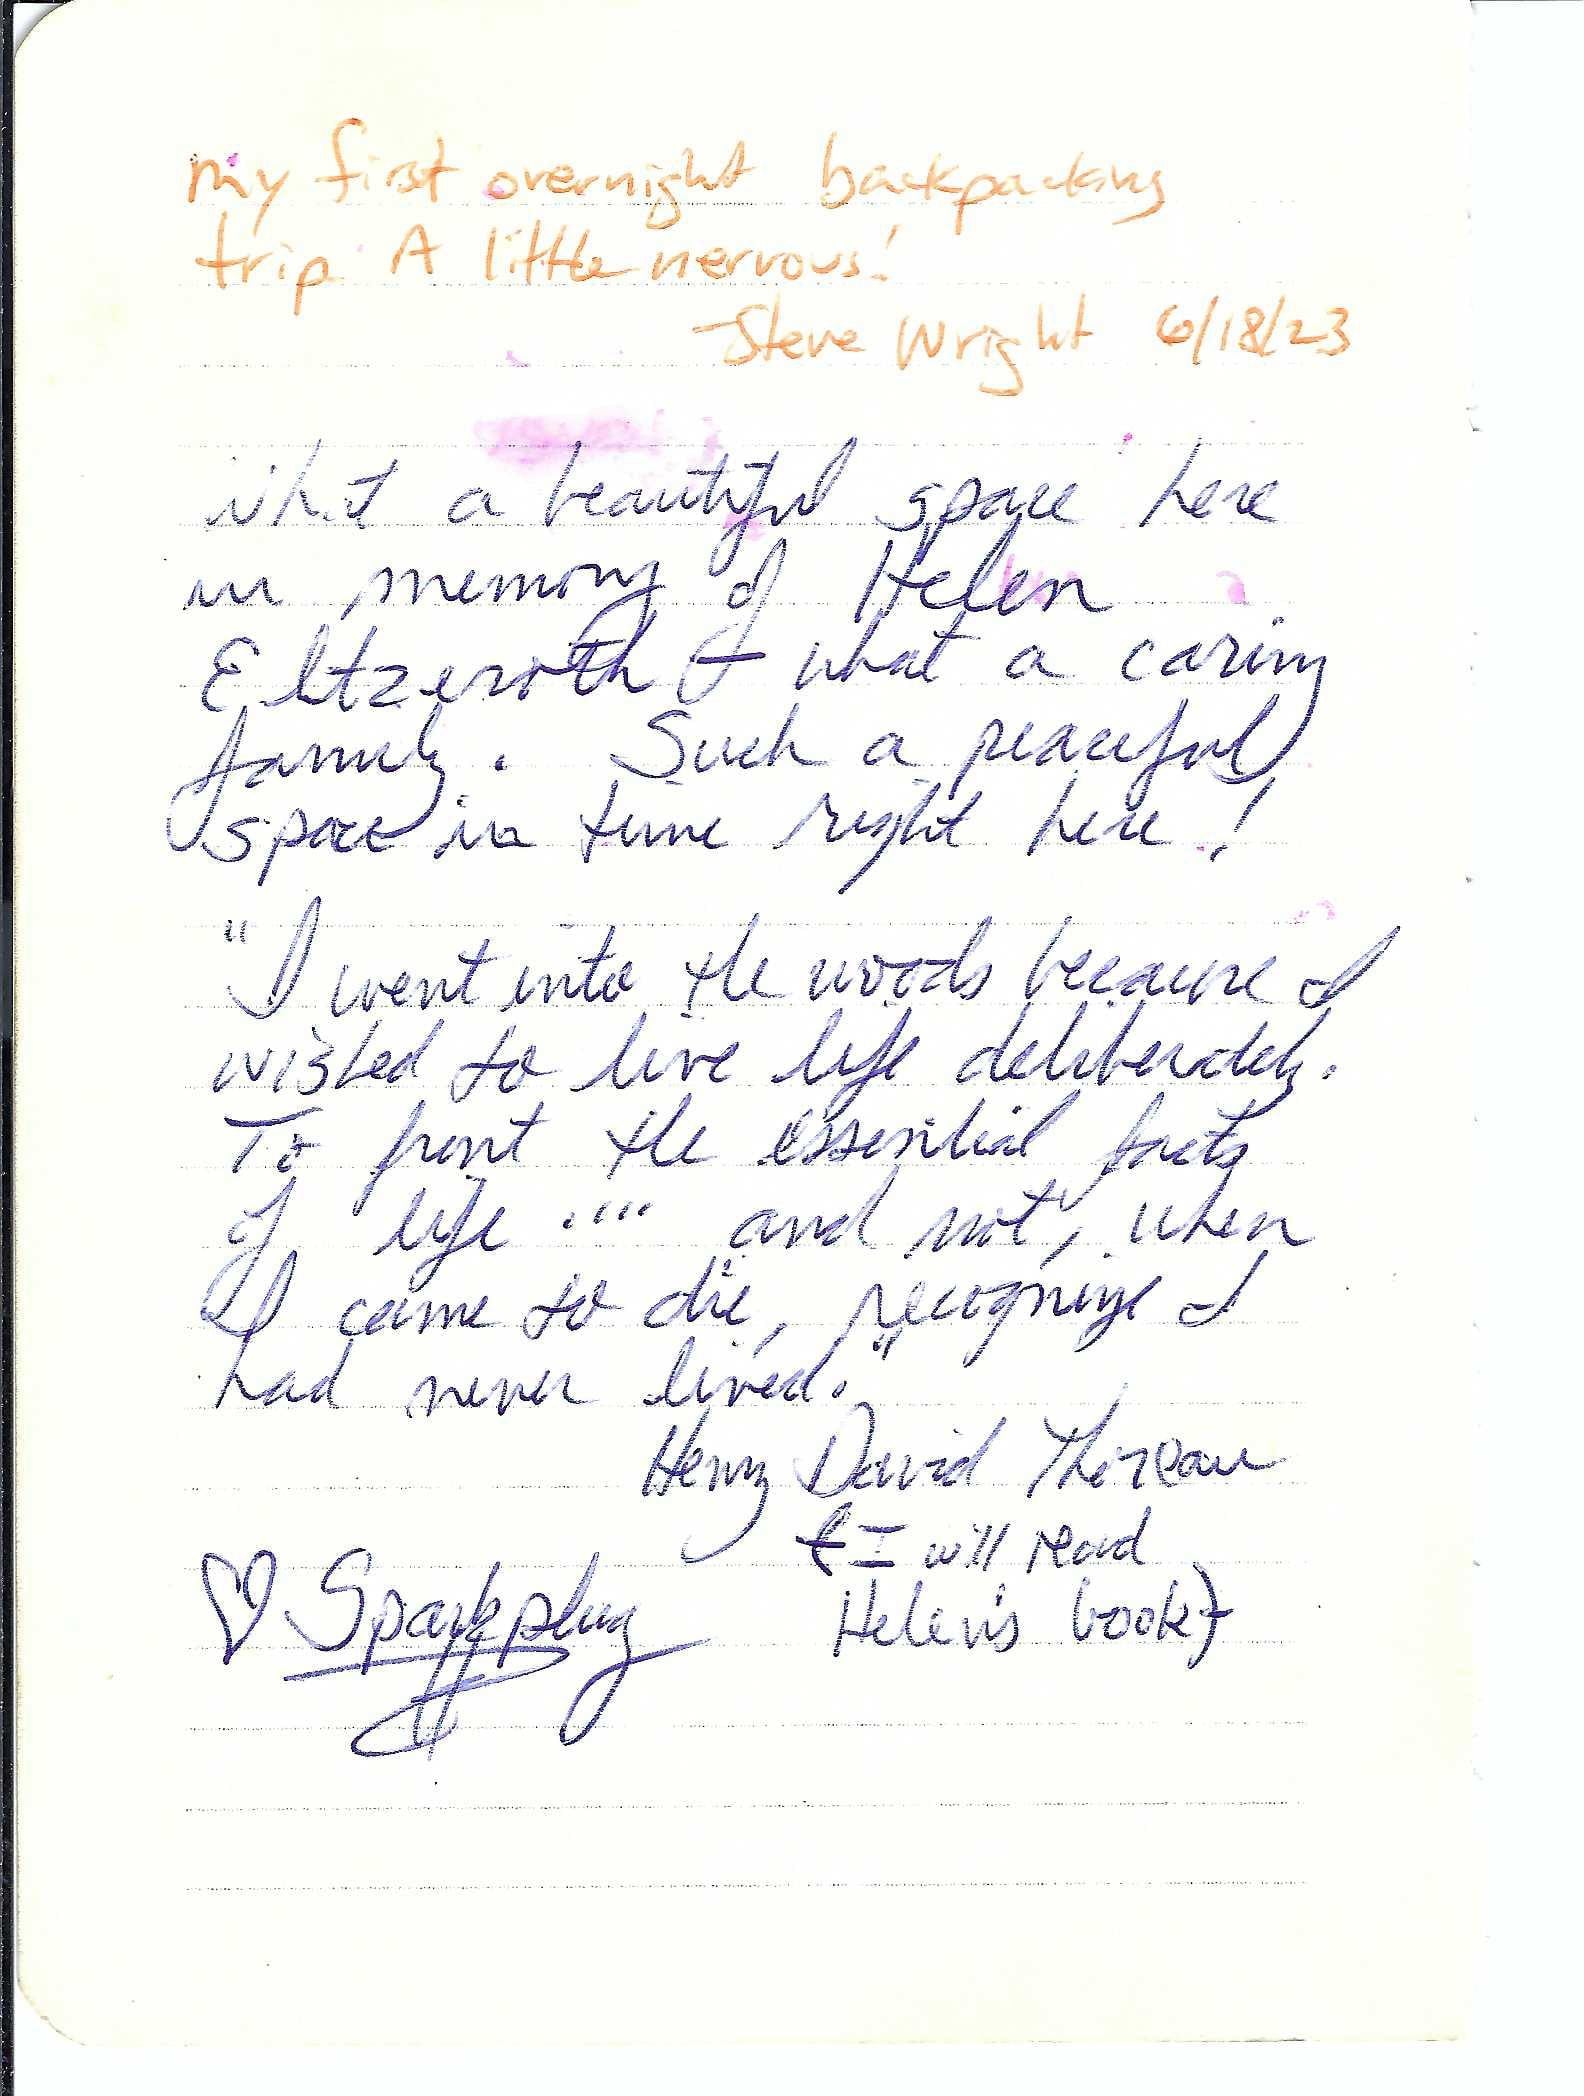 my first overnight backpacking
trip. A little nervous!
-Steve Wright 6/18/23
What a beautiful space here
in memory of Helen
Eltzeroth & what a caring
family. Such a peaceful
space in time right here!
"I went into the woods because I
wished to live life deliberately.
To front the essential facts
of life .... and not, when
I came to die, recognize I
had never lived."
Henry David Thoreau
& I will read
Helen's book
♡ Sparkplug